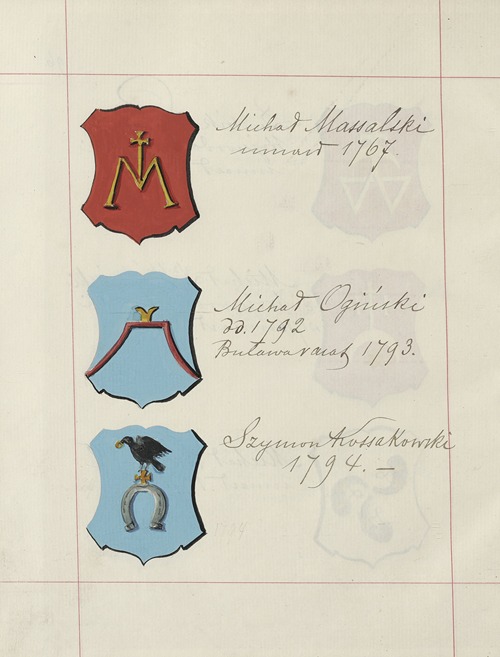 Michał Massalski
umarł 1767.
Michał Ogiński
dd. 1792
Buława vacat 1793.
Szymon Kossakowski
1794. —
1794